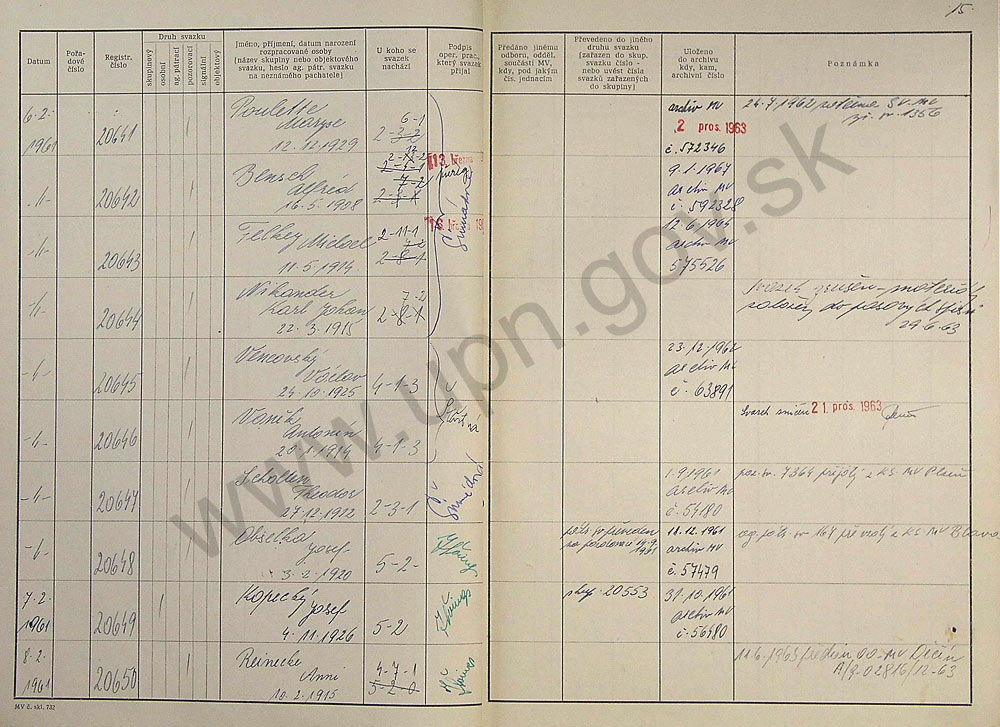 15.
Datum
Pořadové číslo
Registr. číslo
Druh svazku
skupinový
osobní
ag. pátrací
pozorovací
signální
objektový
Jméno, příjmení, datum narození
rozpracované osoby
(název skupiny nebo objektového
svazku, heslo ag. pátr. svazku
na neznámého pachatele)
U koho se
svazek
nachází
Podpis
oper. prac.,
který svazek
přijal
Předáno jinému
odboru, odděl.
součásti MV,
kdy, pod jakým
čís. jednacím
Převedeno do jiného
druhu svazku
(zařazen do skup.
svazku číslo -
nebo uvést čísla
svazků zařazených
do skupiny)
Uloženo
do archivu
kdy, kam,
archivní číslo
Poznámka
6.2.
1961
20641
Poulette
Maryse
12.12.1929
6-1
2-3-2
archiv MV
2 pros. 1963
č. 572346
24.7.1962
-11-
20642
Bensch
Alfréd
16.5.1908
7-2
2-8-1
13. března
9.1.1967
archiv MV
č. 592328
-11-
20643
Felkey Michael
11.5.1914
2-11-1
7-2
2-8-1
16. března
12.6.1964
archiv MV
575526
-11-
20644
Nikander
Karl Johan
22.3.1915
7-2
2-8-1
29.6.63
-11-
20645
Vencovský
Václav
24.10.1925
4-1-3
23.12.1962
archiv MV
č. 63891
-11-
20646
Vaněk
Antonín
20.1.1914
4-1-3
Svazek zničen 21 pros. 1963
-11-
20647
Scholten
Theodor
27.12.1912
2-3-1
1.9.1961
archiv MV
č. 54180
poz. sv. 7364 přijatý z KS MV Plzeň
-11-
20648
Obselka
Josef
3.2.1920
5-2-
18.12.1961
archiv MV
č. 57479
7.2.
1961
20649
Kopecký Josef
4.11.1926
5-2
skup. 20553
31.10.1961
archiv MV
č. 56480
8.2.
1961
20650
Reinecke
Anni
10.2.1915
4-7-1
5-2-0
11.6.1963 předán OO-MV Děčín
A/9-02816/12-63
MV č. skl. 732
www.upn.gov.sk